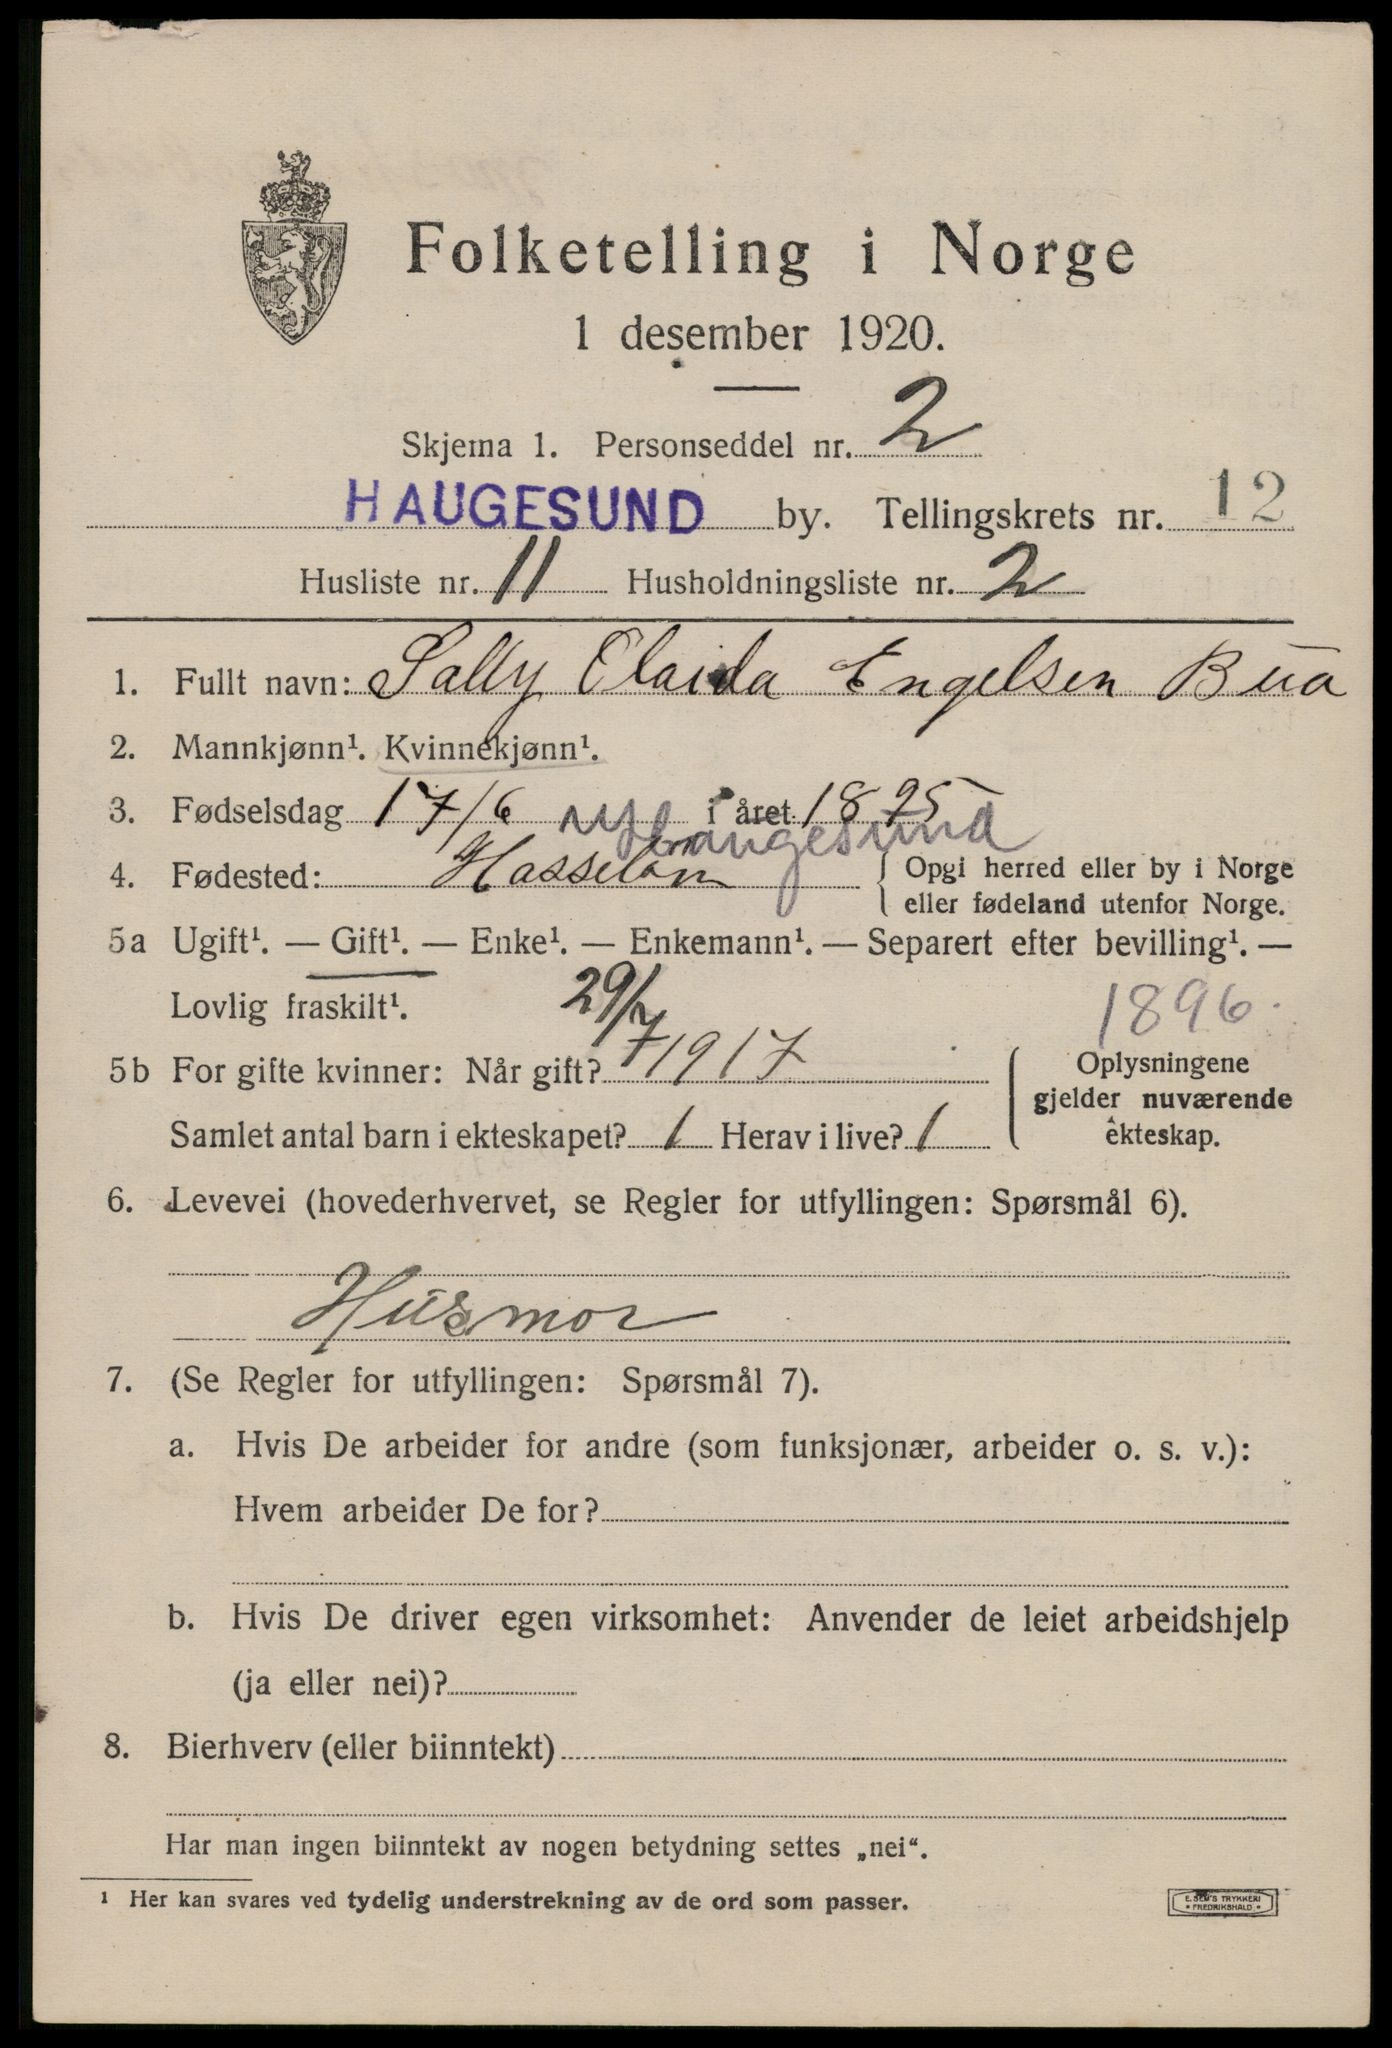 Folketelling i Norge
1 desember 1920.
Skjema 1. Personseddel nr. 2
HAUGESUND by. Tellingskrets nr. 12
Husliste nr. 11 Husholdningsliste nr. 2
1. Fullt navn: Sally Elaida Engelsen Bua
2. Mannkjønn¹. Kvinnekjønn¹.
3. Fødselsdag 17/6 i året 1895
haugesund
4. Fødested: { Opgi herred eller by i Norge
eller fødeland utenfor Norge.
5a Ugift¹. — Gift¹. — Enke¹. — Enkemann¹. — Separert efter bevilling¹. —
Lovlig fraskilt¹.
1896.
5b For gifte kvinner: Når gift? 29/7 1917
Samlet antal barn i ekteskapet? 1 Herav i live? 1
Oplysningene
gjelder nuværende
ekteskap.
6. Levevei (hovederhvervet, se Regler for utfyllingen: Spørsmål 6).
Husmor
7. (Se Regler for utfyllingen: Spørsmål 7).
a. Hvis De arbeider for andre (som funksjonær, arbeider o. s. v.):
Hvem arbeider De for?
b. Hvis De driver egen virksomhet: Anvender de leiet arbeidshjelp
(ja eller nei)?
8. Bierhverv (eller biinntekt)
Har man ingen biinntekt av nogen betydning settes „nei“.
¹ Her kan svares ved tydelig understrekning av de ord som passer.
E. SEM'S TRYKKERI
• FREDRIKSHALD •